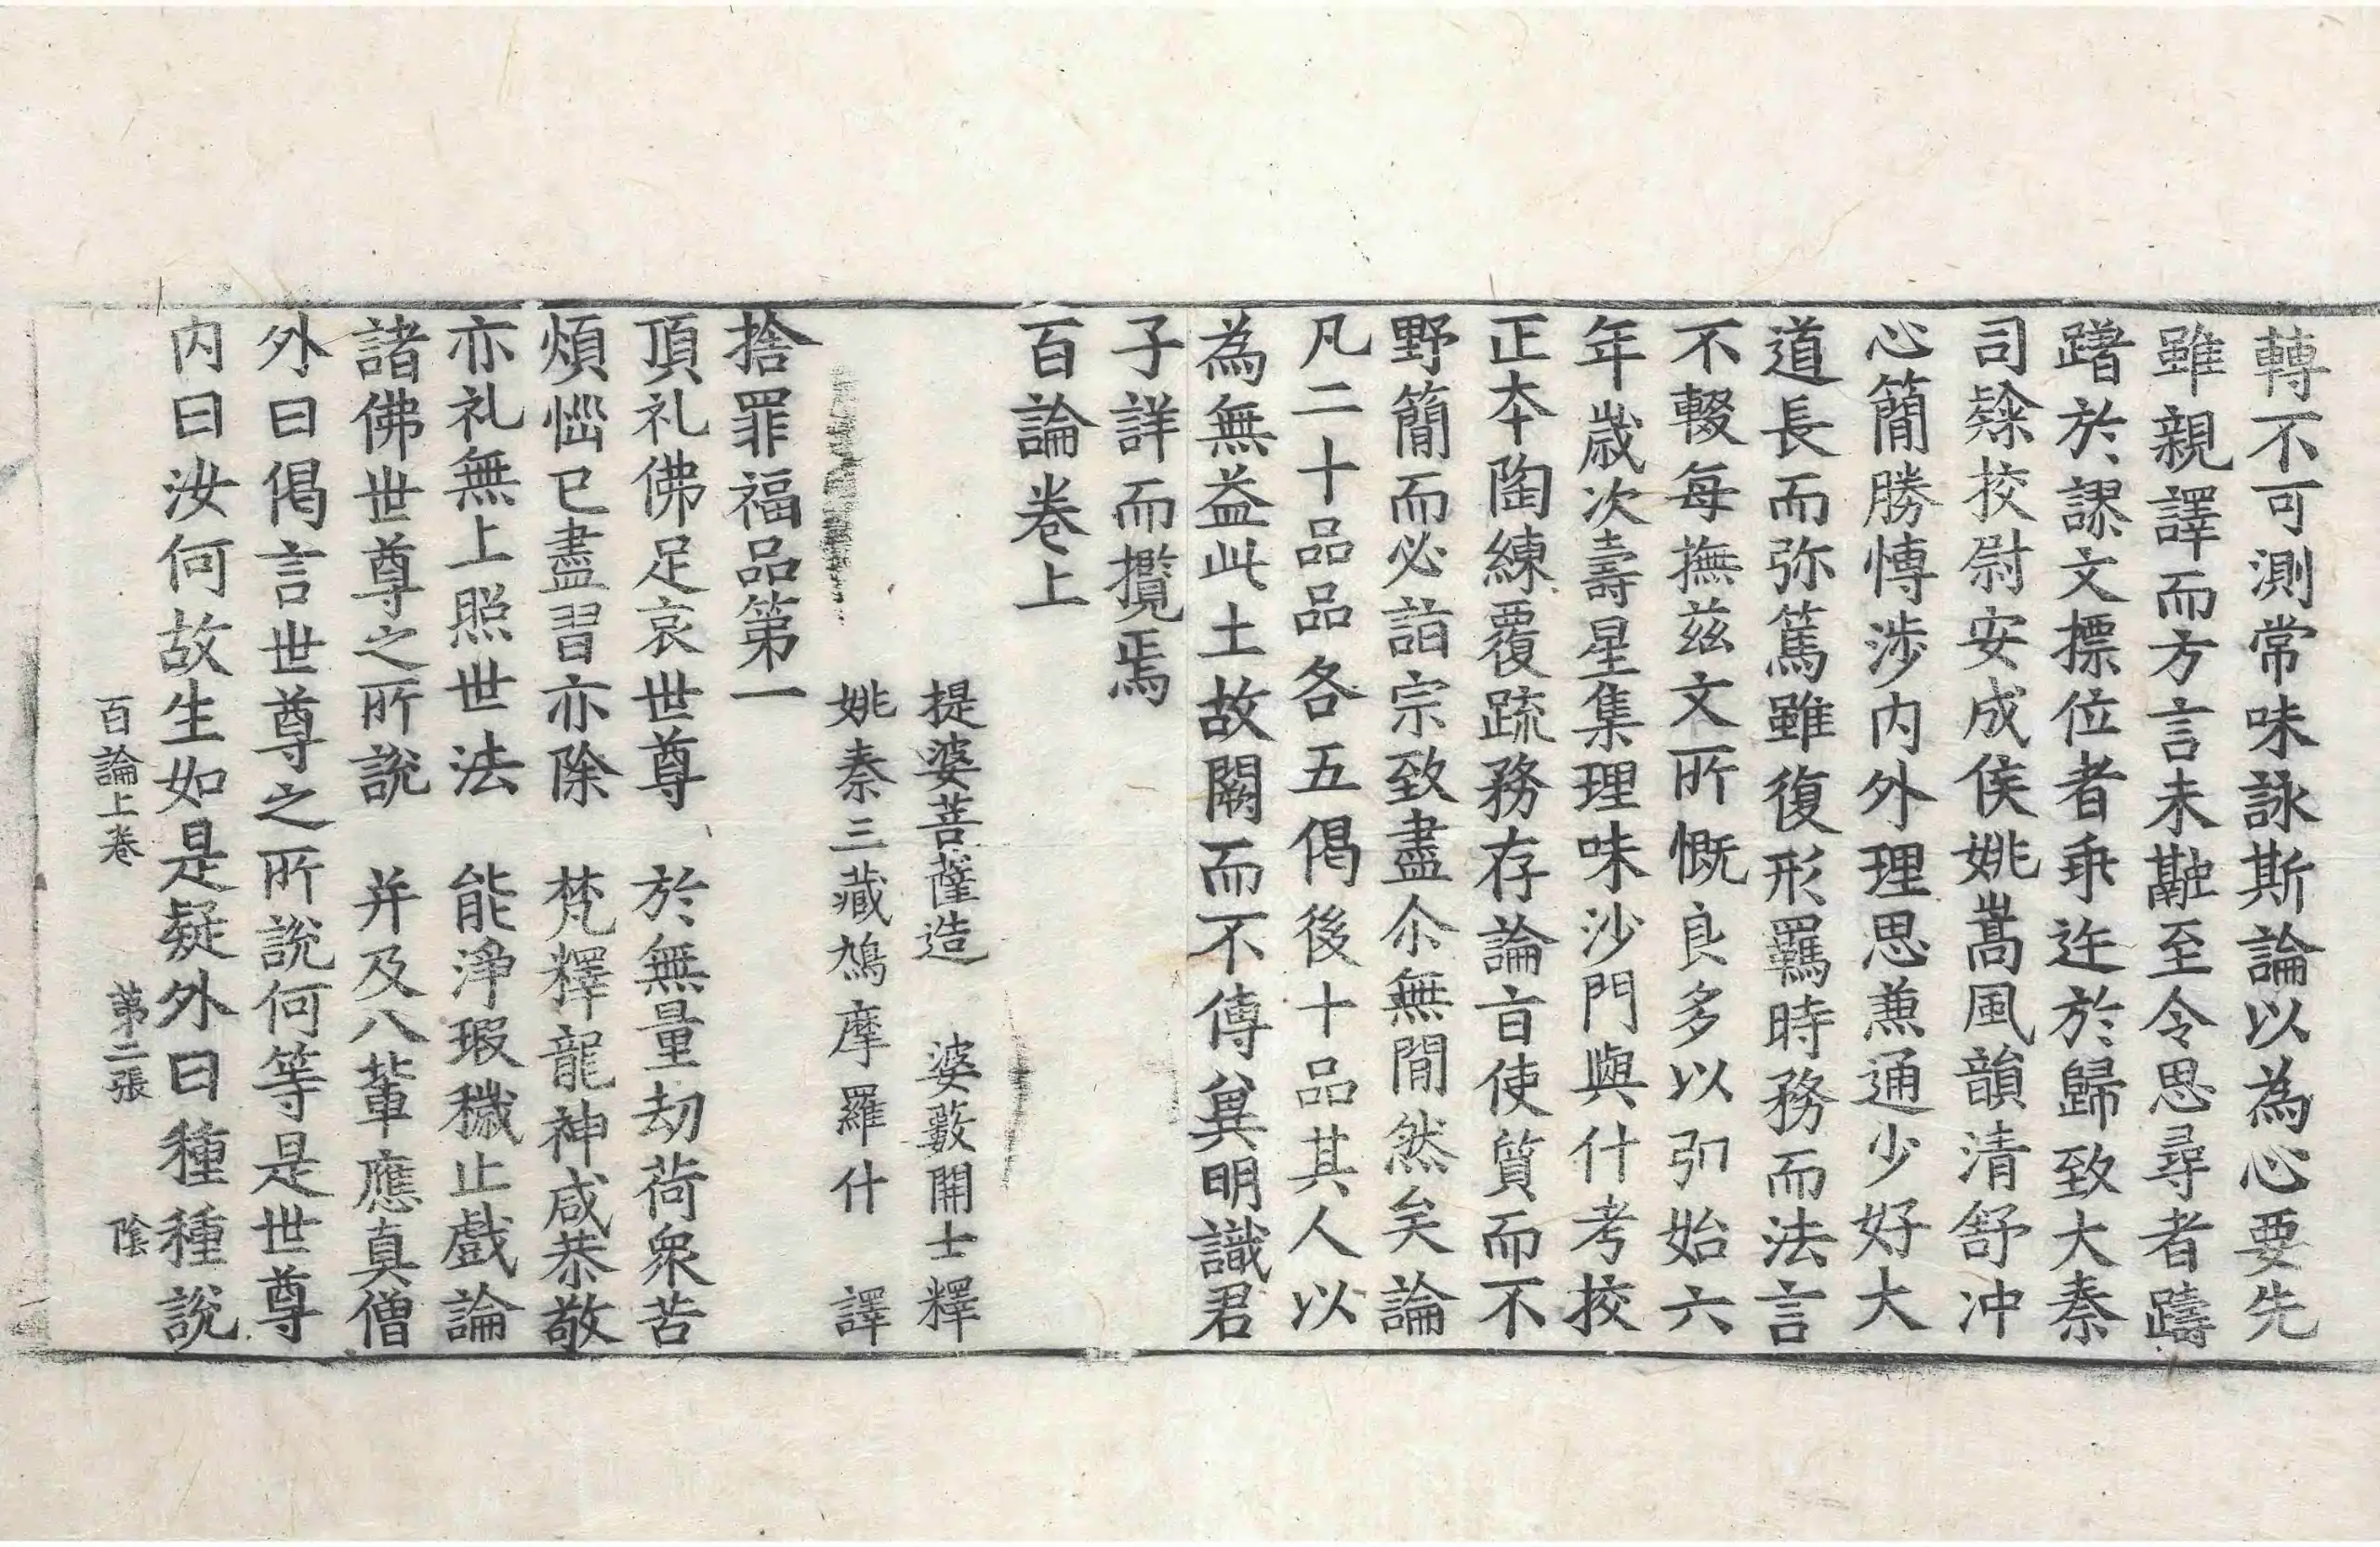 轉不可測常味詠斯論以為心要先
雖親譯而方言未融至令思尋者躊
躇於謬文摽位者乖迕於歸致大秦
司𨽻挍尉安成侯姚嵩風韻清舒沖
心簡勝愽涉内外理思兼通少好大
道長而弥篤雖復形羈時務而法言
不輟每撫兹文所慨良多以弘始六
年歲次壽星集理味沙門與什考挍
正本陶練覆疏務存論㫖使質而不
野簡而必詣宗致盡尒無閒然矣論
凡二十品品各五偈後十品其人以
為無益此土故闕而不傳兾明識君
子詳而攬焉
百論卷上
提婆菩薩造　婆藪開士釋
姚秦三藏鳩摩羅什　譯
捨罪福品第一
頂礼佛足哀世尊　於無量劫荷衆苦
煩惱已盡習亦除　梵釋龍神咸恭敬
亦礼無上照世法　能淨瑕穢止戲論
諸佛世尊之所說　并及八輩應真僧
外曰偈言世尊之所說何等是世尊
内曰汝何故生如是疑外曰種種說
百論上卷　第二張　陰